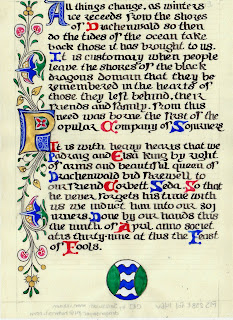 All things change, as winters
ice receeds from the shores
of Drachenwald so then
do the tides of the ocean take
back those it has brought to us.
It is customary when people
leave the shores of the black
dragons domain that they be
remembered in the hearts of
those they left behind, their
friends and family. From this
need was borne the first of the
opular Company of Sojourners.
It is with heavy hearts that we
Padraig and Elsa king by right
of arms and beautiful queen of
Drachenwald bid farewell to
our friend Corbett Seda. So that
he never forgets his time with
us we induct him into our soj
urners. Done by our hands this
the ninth of April anno societ
atis thirty-nine at this the Feast
of Fools.